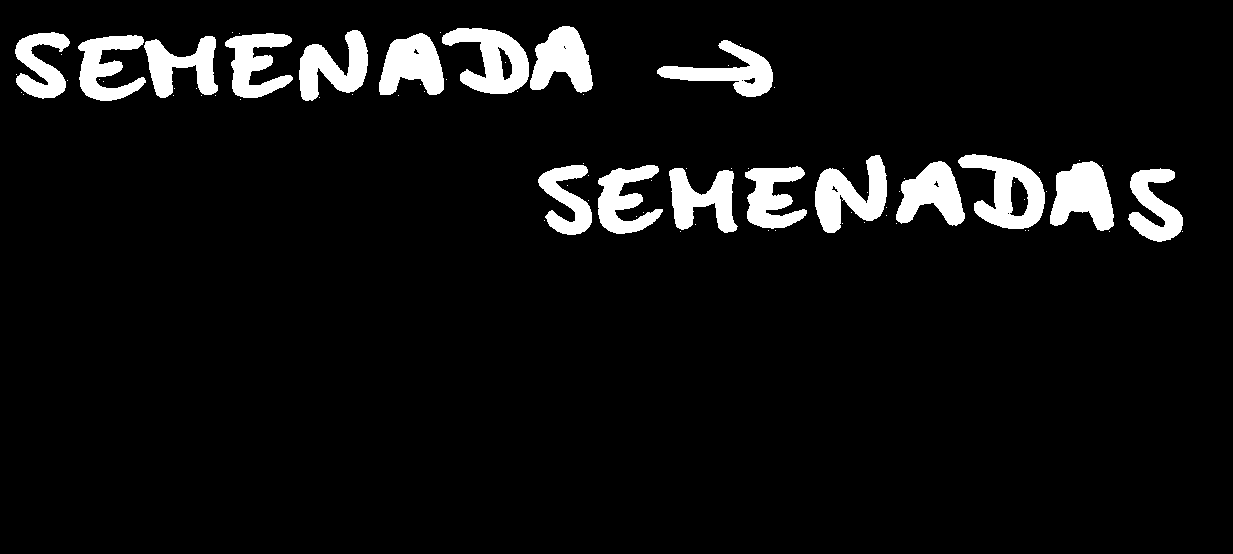 SEMENADA →
SEMENADAS